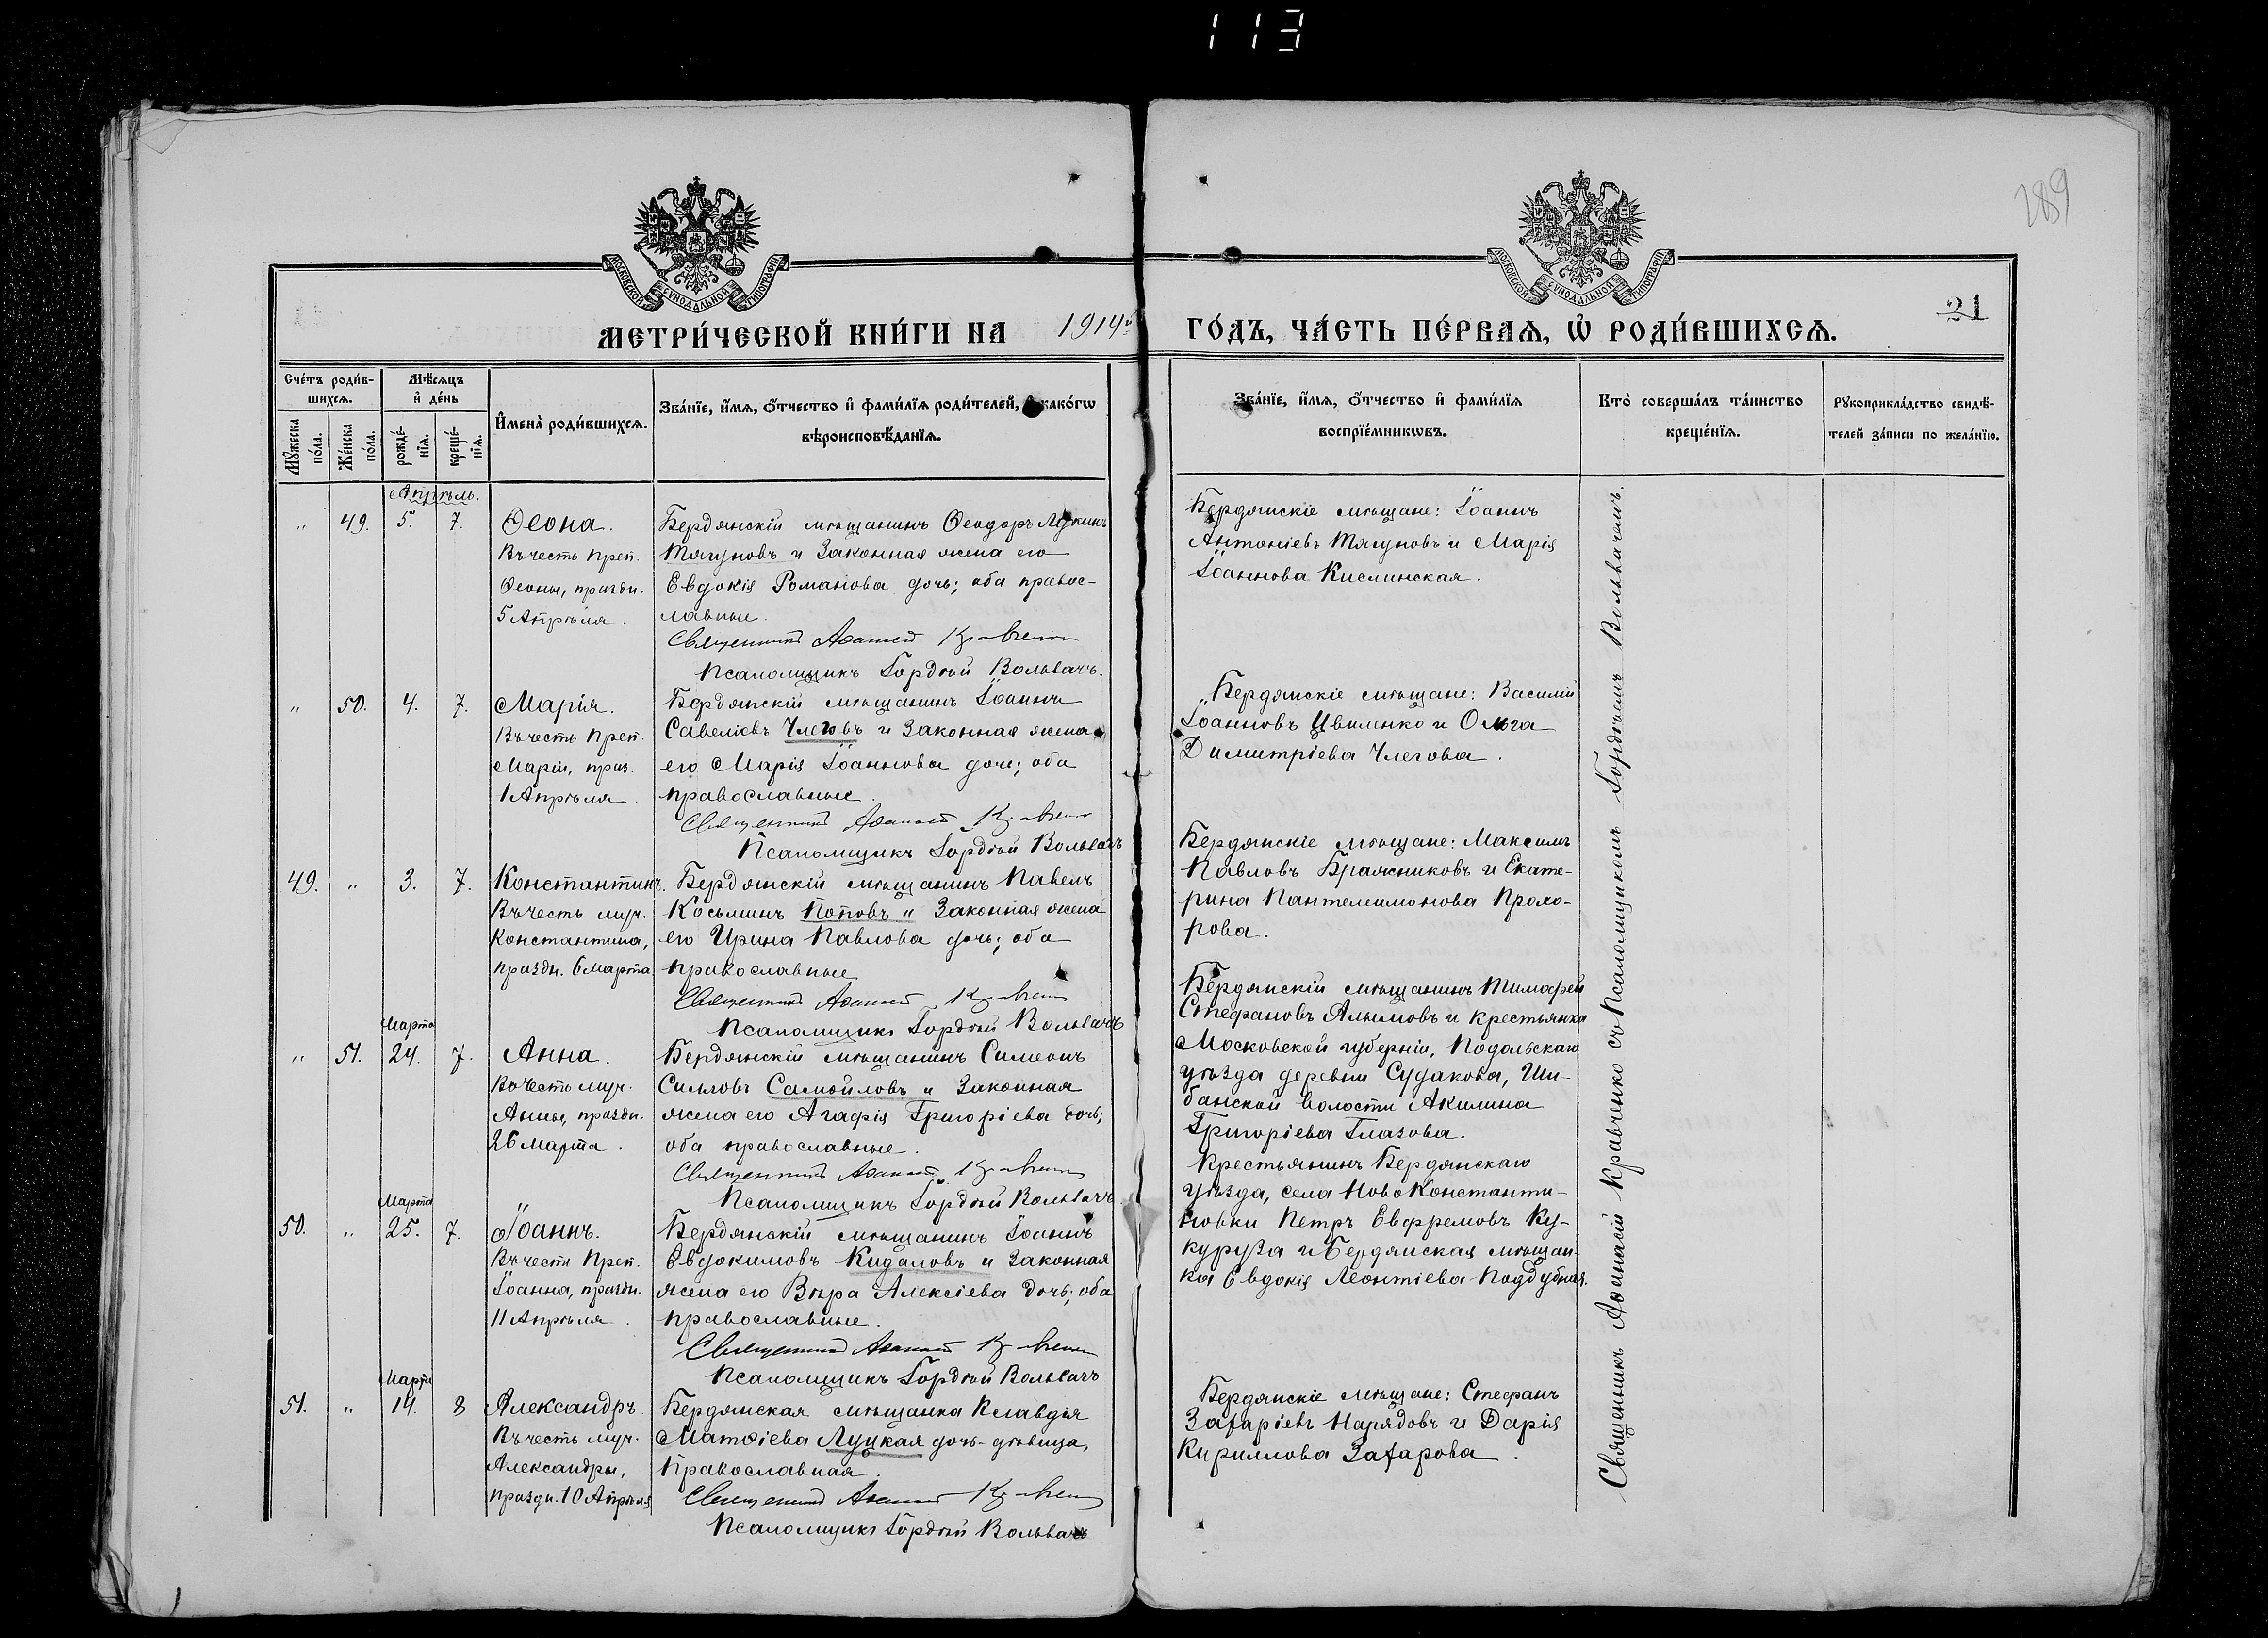 113
289
МОСКОВСКОЙ СѴНОДАЛЬНОЙ ТИПОГРАФІИ
МОСКОВСКОЙ СѴНОДАЛЬНОЙ ТИПОГРАФІИ
21
МЕТРИ́ЧЕСКОЙ КНИ́ГИ НА 1914й ГО́ДЪ, ЧА́СТЬ ПЕ́РВАѦ, Ѡ҆ РОДИ́ВШИХСѦ.
Сче́тъ роди́в-
шихсѧ.
Мꙋ́жеска по́ла.
Же́нска по́ла.
Мѣ́сѧцъ и҆ де́нь
рожде́-нїѧ.
креще́-нїѧ.
И҆мена̀ роди́вшихсѧ.
Зва́нїе, и҆́мѧ, ѻ҆́тчество и҆ фами́лїѧ роди́телей, и҆ како́гѡ
вѣроисповѣ́данїѧ.
Зва́нїе, и҆́мѧ, ѻ҆́тчество и҆ фами́лїѧ
воспрїе́мникѡвъ.
Кто̀ соверша́лъ та́инство
креще́нїѧ.
Рꙋкоприкла́дство свидѣ́-
телей за́писи по жела́нїю.
Апрѣль.
" 49. 5. 7. Ѳеона.
Въ честь преп.
Ѳеоны, праздн.
5 Апрѣля.
Бердянскій мѣщанинъ Ѳеодоръ Лукинъ
Тягуновъ и законная жена его
Евдокія Романова дочь; оба правос-
лавные.
Священникъ Аѳанасій Кравченко
Псаломщикъ Гордѣй Вольвачъ.
Бердянскіе мѣщане: Іоаннъ
Антоніевъ Тягуновъ и Марія
Іоаннова Кислинская.
" 50. 4. 7. Марія.
Въ честь преп.
Маріи, праз.
1 Апрѣля.
Бердянскій мѣщанинъ Іоаннъ
Савеліевъ Члеговъ и законная жена
его Марія Іоаннова дочь; оба
православные.
Священникъ Аѳанасій Кравченко
Псаломщикъ Гордѣй Вольвачъ
Бердянскіе мѣщане: Василій
Іоанновъ Цвиленко и Ольга
Димитріева Члегова.
49. " 3. 7. Константинъ.
Въ честь муч.
Константина,
праздн. 6 марта
Бердянскій мѣщанинъ Павелъ
Косьминъ Поповъ и законная жена
его Ирина Павлова дочь; оба
православные
Священникъ Аѳанасій Кравченко
Псаломщикъ Гордѣй Вольвачъ
Бердянскіе мѣщане: Максимъ
Павловъ Бражниковъ и Екате-
рина Пантелеимонова Прохо-
рова.
Марта
" 51. 24. 7. Анна.
Въ честь муч.
Анны, праздн.
26 марта.
Бердянскій мѣщанинъ Симеонъ
Силловъ Самойловъ и законная
жена его Агафія Григоріева дочь;
оба православные.
Священникъ Аѳанасій Кравченко
Псаломщикъ Гордѣй Вольвачъ.
Бердянскій мѣщанинъ Тимоѳей
Стефановъ Алымовъ и крестьянка
Московской губерніи, Подольскаго
уѣзда деревни Судакова, Ши-
банской волости Акилина
Григоріева Глазова.
Марта
50. " 25. 7. Іоаннъ.
Въ честь Преп.
Іоанна, праздн.
11 Апрѣля.
Бердянскій мѣщанинъ Іоаннъ
Евдокимовъ Кидаловъ и законная
жена его Вѣра Алексіева дочь; оба
православные.
Священникъ Аѳанасій Кравченко
Псаломщикъ Гордѣй Вольвачъ
Крестьянинъ Бердянскаго
уѣзда, села Ново Константи-
новки Петръ Евфремовъ Ку-
куруза и Бердянская мѣщан-
ка Евдокія Леонтіева Поддубная.
Марта
51. " 14. 8 Александръ.
Въ честь муч.
Александры,
праздн. 10 Апрѣля
Бердянская мѣщанка Клавдія
Матѳіева Луцкая дочь-дѣвица,
православная.
Священникъ Аѳанасій Кравченко
Псаломщикъ Гордѣй Вольвачъ
Бердянскіе мѣщане: Стефанъ
Захаріевъ Нарядовъ и Дарія
Кириллова Захарова.
Священникъ Аѳанасій Кравченко съ Псаломщикомъ Гордѣемъ Вольвачомъ.